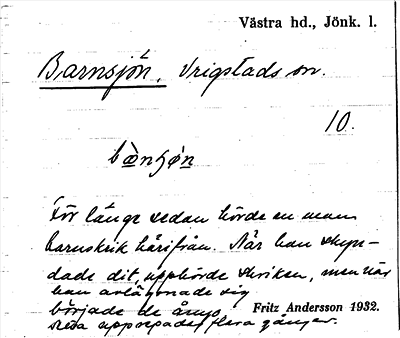 Västra hd., Jönk. l.
Barnsjön, Vrigstads sn.
10.
För länge sedan hörde en man
barnskrik härifrån. När han skyn-
dade dit, upphörde skriken, men när
han avlägsnade sig
började de ånyo.
Fritz Andersson 1932.
Detta upprepades flera gånger.